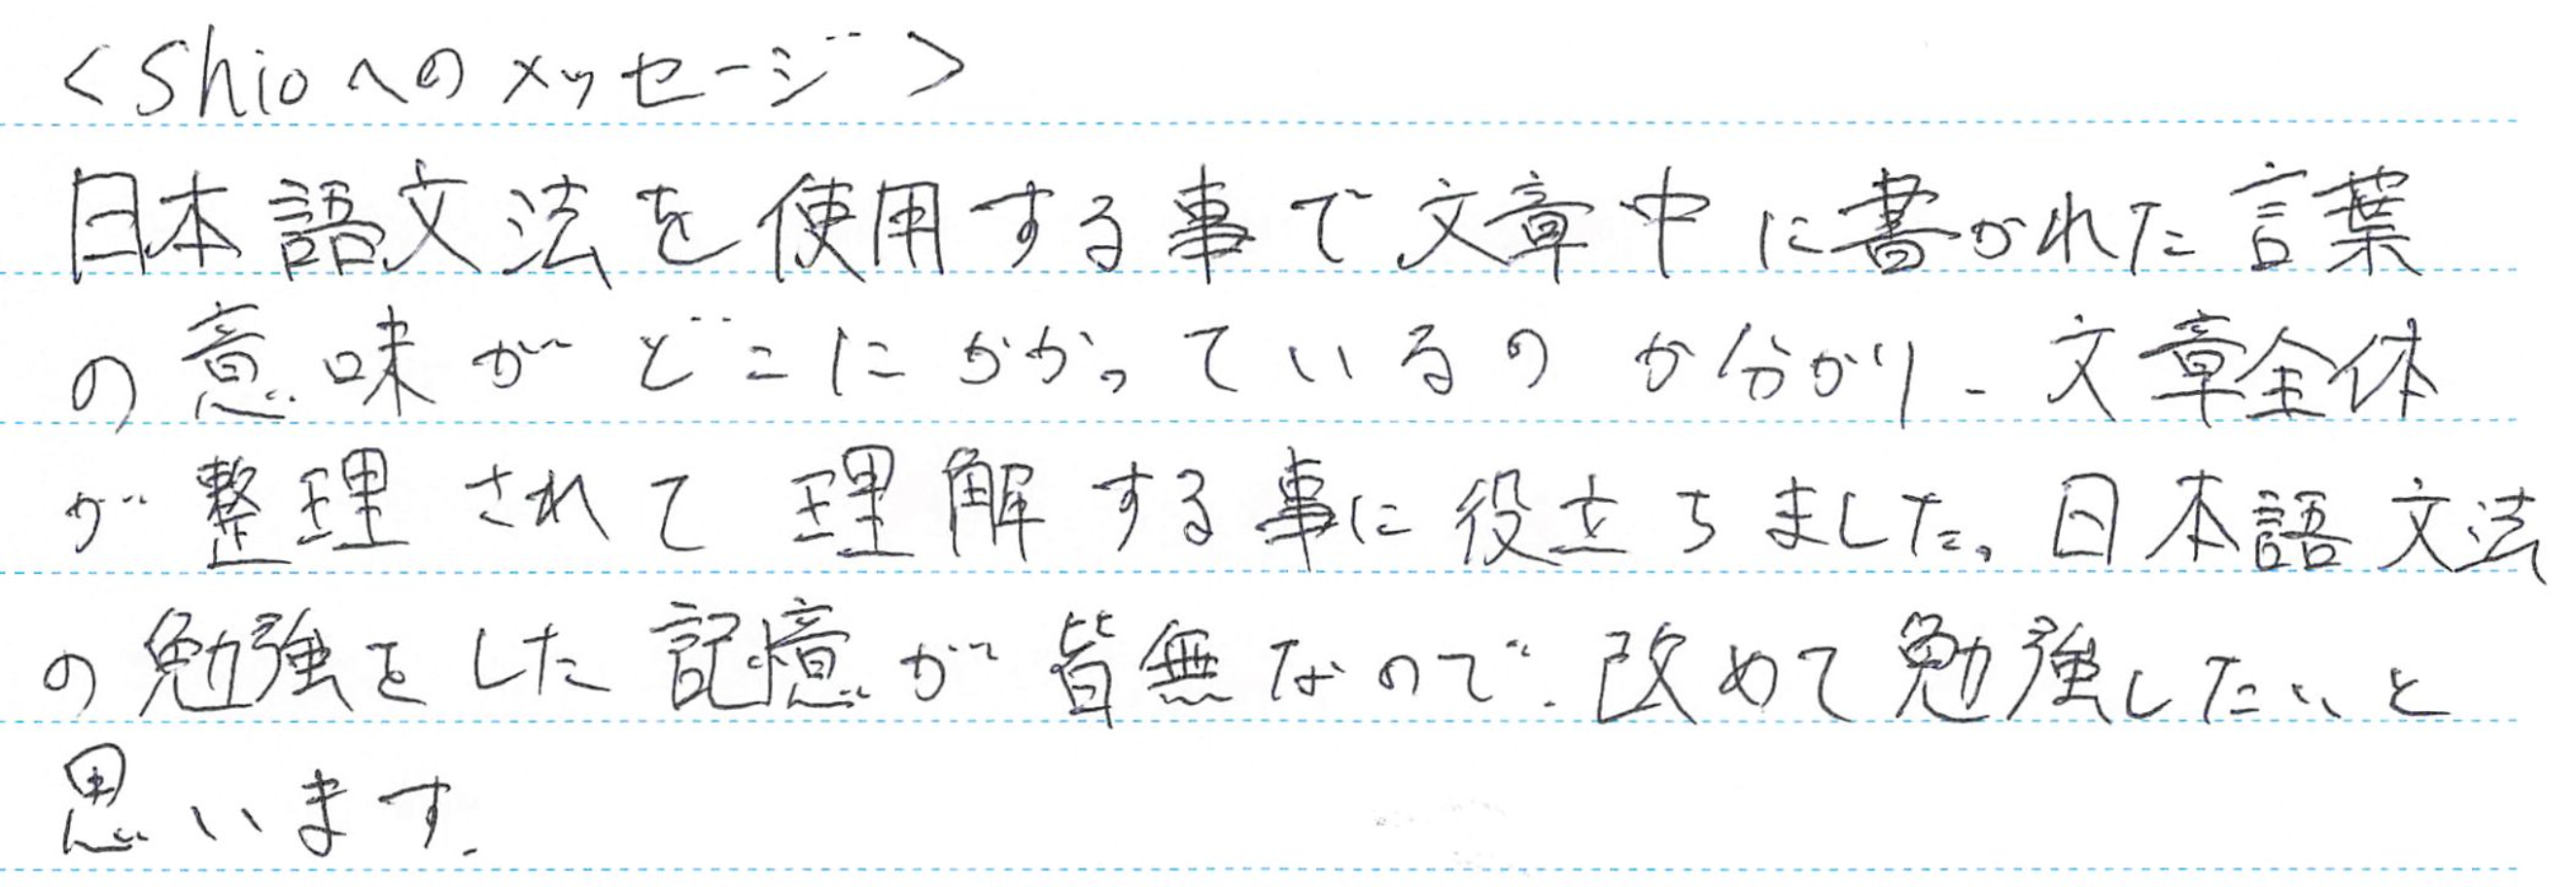 <Shioへのメッセージ>
日本語文法を使用する事で文章中に書かれた言葉
の意味がどこにかかっているのか分かり、文章全体
が整理されて理解する事に役立ちました。日本語文法
の勉強をした記憶が皆無なので、改めて勉強したいと
思います。